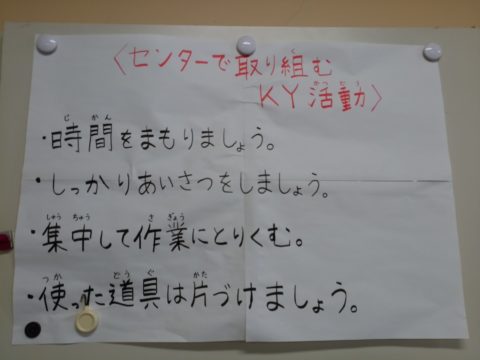 〈センターで取り組む
KY活動〉
・時間をまもりましょう。
・しっかりあいさつをしましょう。
・集中して作業にとりくむ。
・使った道具は片づけましょう。